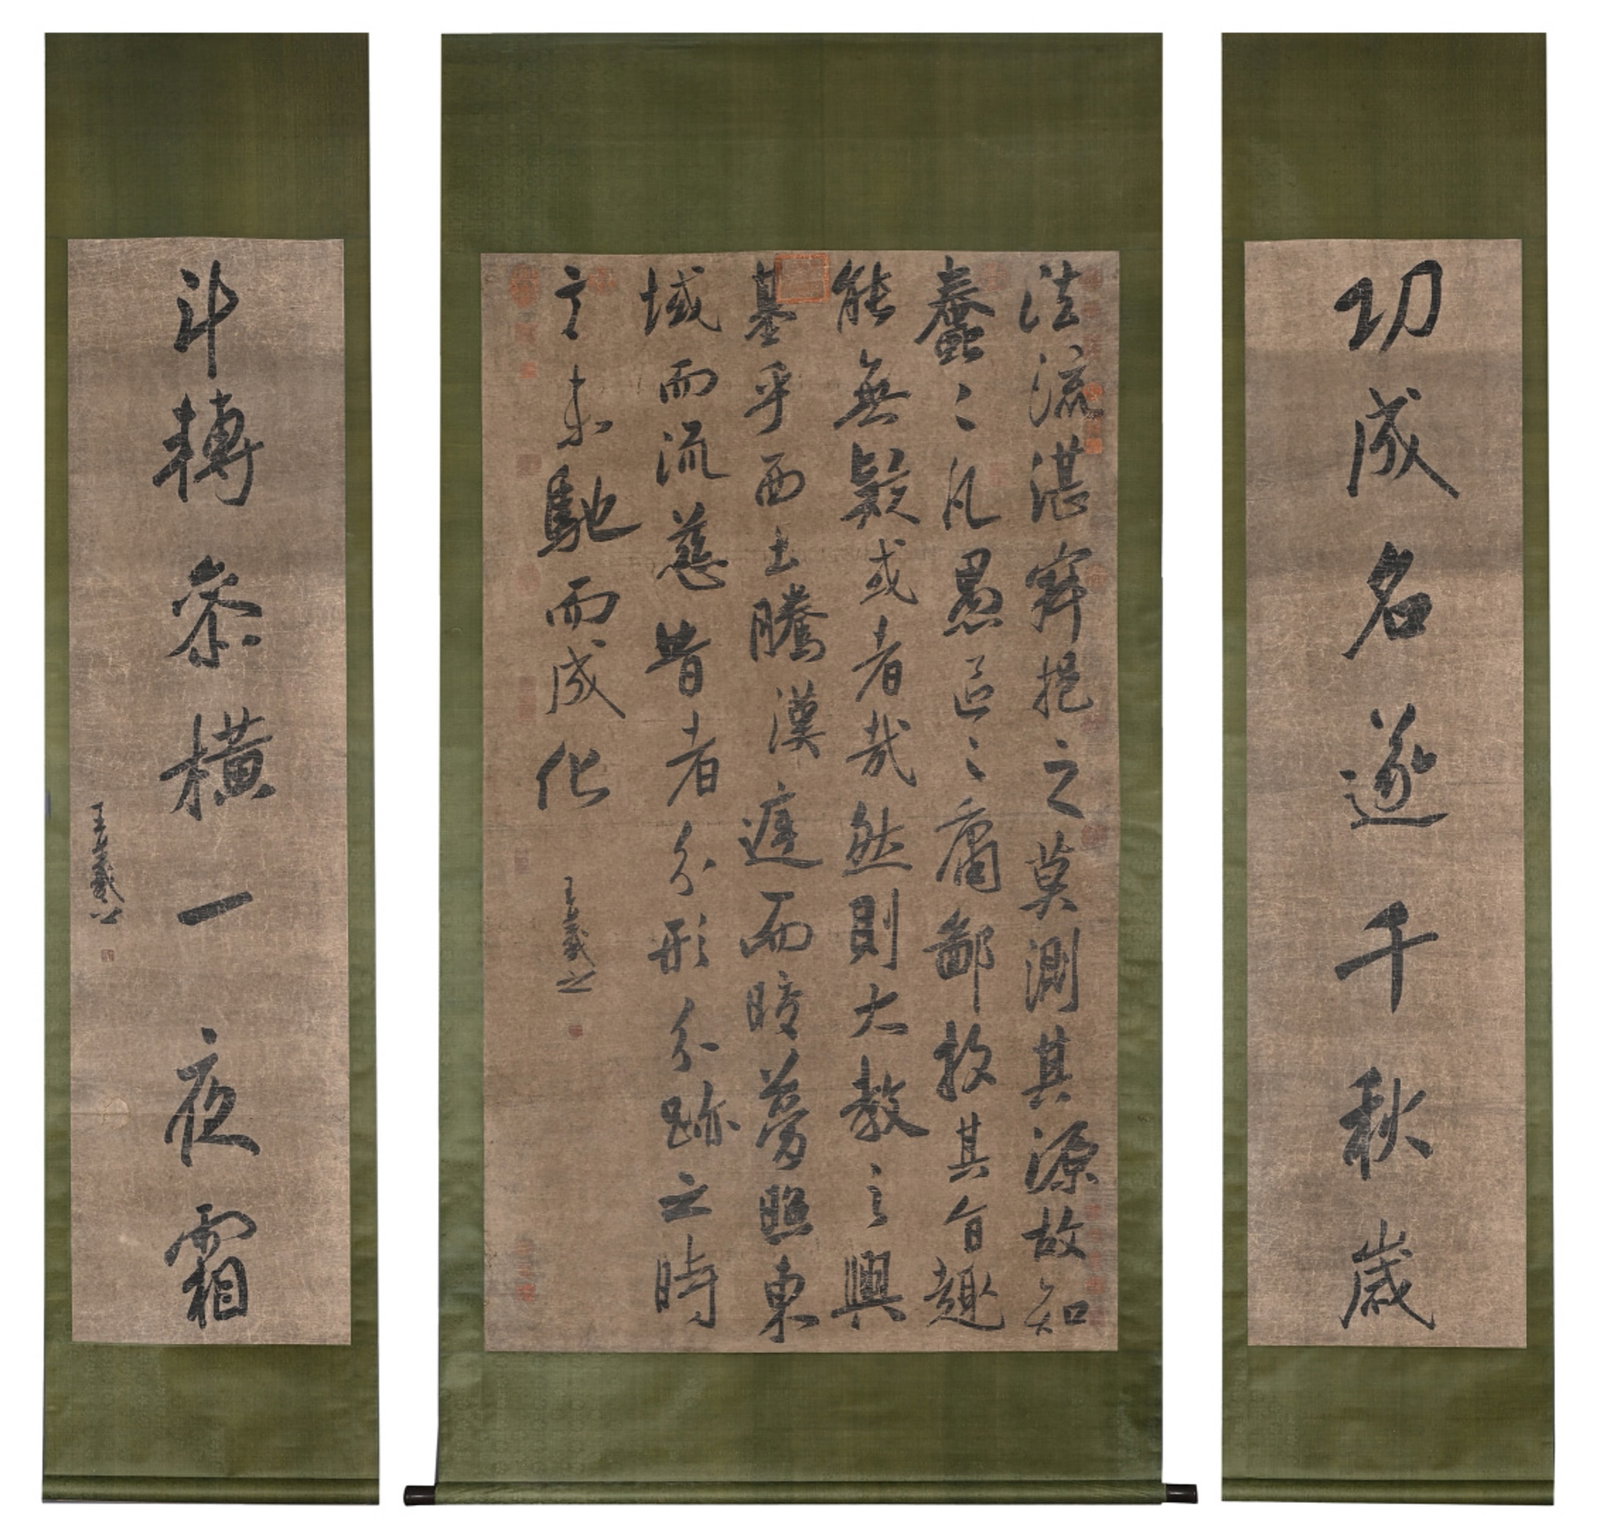 功成名遂千秋歲
法流湛寂挹之莫測其源故知
蠢々凡愚區々庸鄙投其旨趣
能無疑或者哉然則大教之興
基乎西土騰漢庭而皎夢照東
域而流慈昔者分形分跡之時
言未馳而成化
王羲之
斗轉參橫一夜霜
王羲之